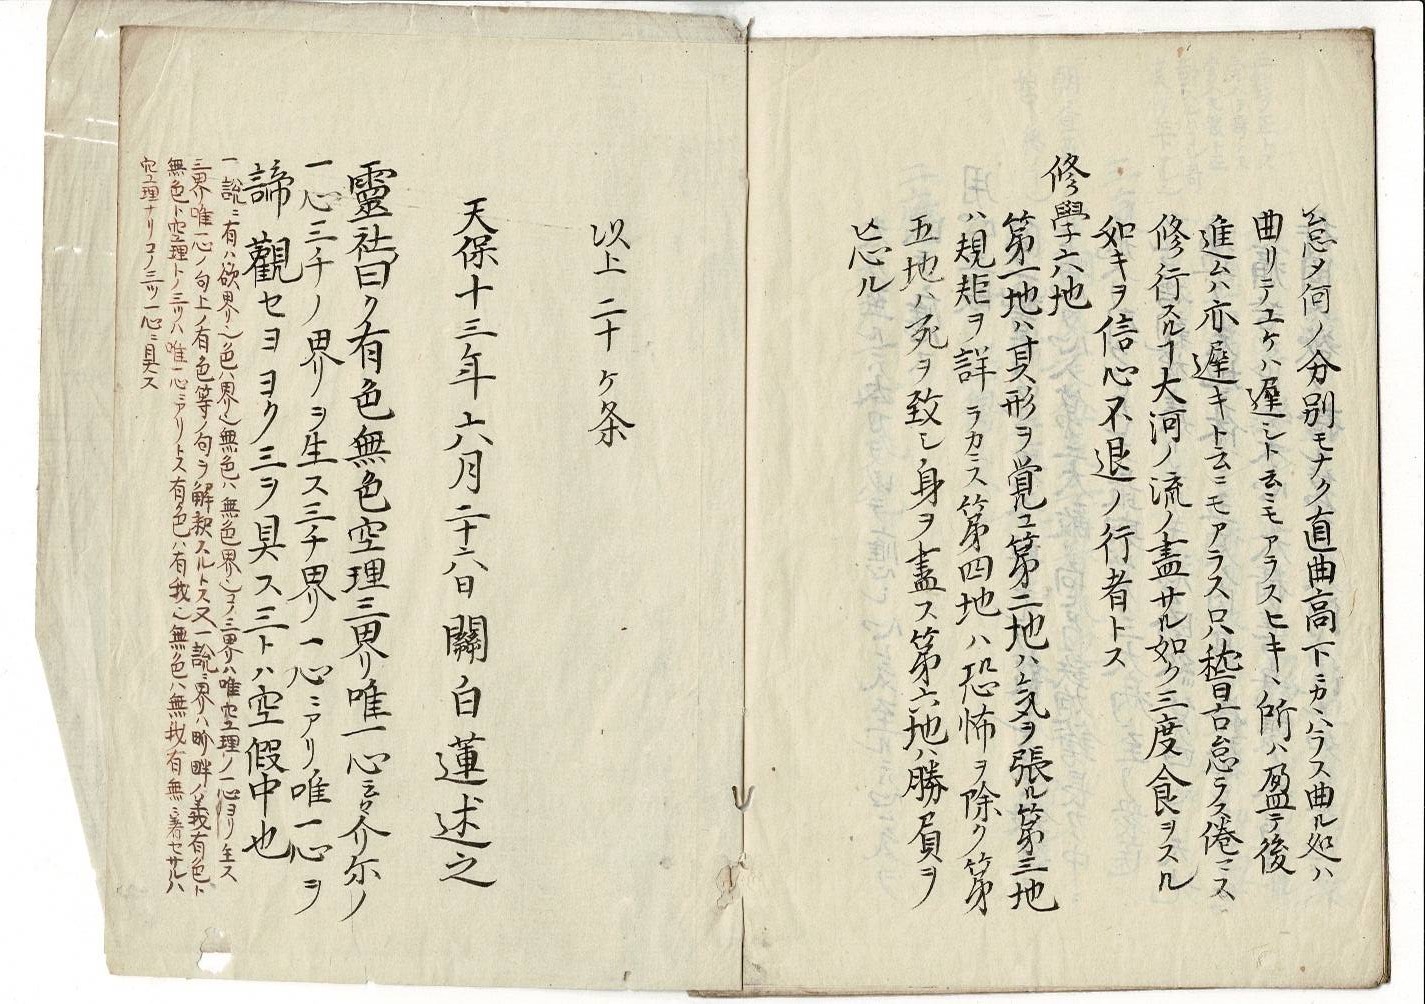 怠タ何ノ分別モナク直曲高下ニカヽハラス曲ル処ハ
曲リテユケハ遅シト云ニモアラスヒキヽ所ハ盈テ後
進ムハ亦遅キト云ニモアラス只稽古怠ラス倦ニス
修行スルヿ大河ノ流ノ盡サル如ク三度食ヲスル
如キヲ信心不退ノ行者トス
修學六地
第一地ハ其形ヲ覚ユ第二地ハ気ヲ張ル第三地
ハ規矩ヲ詳ラカニス第四地ハ恐怖ヲ除ク第
五地ハ死ヲ致シ身ヲ盡ス第六地ハ勝負ヲ
忘ル
以上二十ヶ条
天保十三年六月二十六日關白蓮述之
靈社曰ク有色無色空理三界唯一心言介尓ノ
一心三千ノ界ヲ生ス三千界一心ニアリ唯一心ヲ
諦觀セヨヨク三ヲ具ス三トハ空假中也
一說ニ有ハ欲界也色ハ界也無色ハ無色界也コノ三界ハ唯空理ノ一心ヨリ生ス
三界唯一心ノ句上ノ有色等ノ句ヲ解釈スルトス又一說ニ界ハ畍畔ノ義有色ト
無色ト空理トノ三ツハ唯一心ニアリトス有色ハ有我也無色ハ無我有無ニ著セサルハ
空理ナリコノ三ツ一心ニ具ス